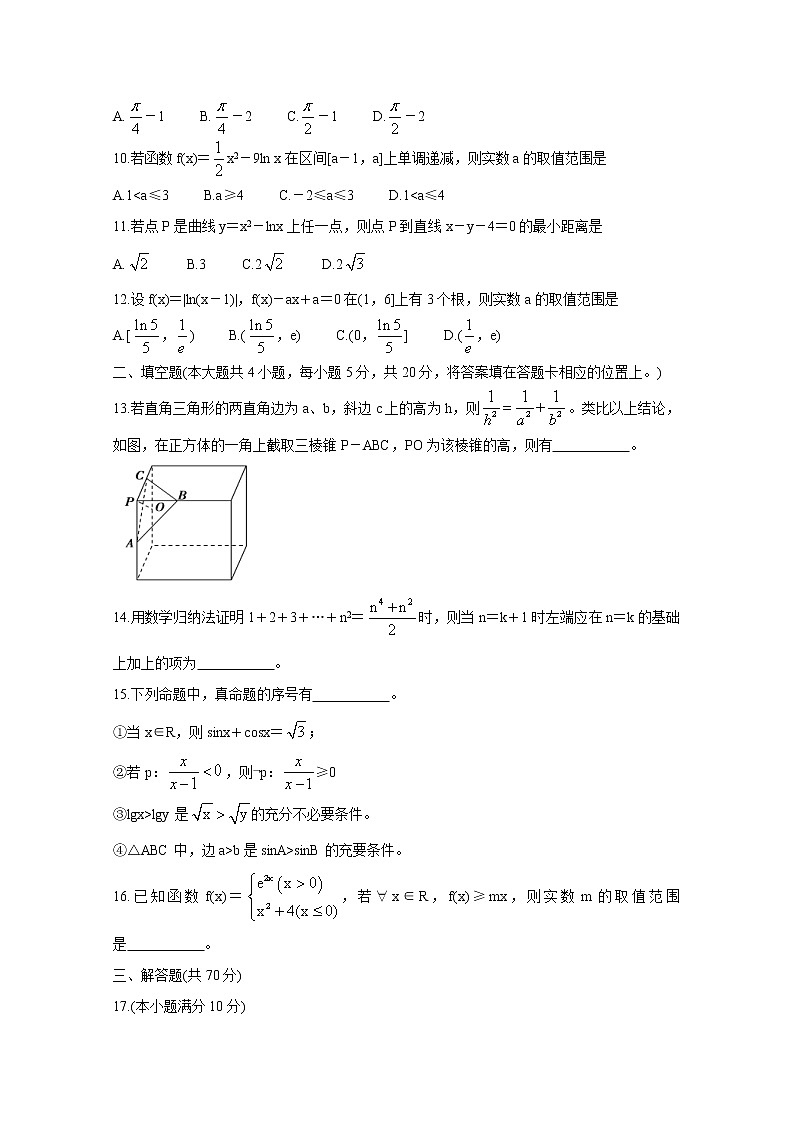 A. π/4－1 B. π/4－2 C. π/2－1 D. π/2－2
10.若函数 f(x)＝1/2 x²－9ln x 在区间[a－1，a]上单调递减，则实数 a 的取值范围是
A.1<a≤3 B.a≥4 C.－2≤a≤3 D.1<a≤4
11.若点 P 是曲线 y＝x²－lnx 上任一点，则点 P 到直线 x－y－4＝0 的最小距离是
A. √2 B.3 C.2√2 D.2√3
12.设 f(x)＝|ln(x－1)|，f(x)－ax＋a＝0 在(1，6]上有 3 个根，则实数 a 的取值范围是
A.[ln5/5，1/e) B.(ln5/5，e) C.(0，ln5/5] D.(1/e，e)
二、填空题(本大题共 4 小题，每小题 5 分，共 20 分，将答案填在答题卡相应的位置上。)
13.若直角三角形的两直角边为 a、b，斜边 c 上的高为 h，则 1/h²＝1/a²＋1/b²。类比以上结论，
如图，在正方体的一角上截取三棱锥 P－ABC，PO 为该棱锥的高，则有___________。
C
P O B
A
14.用数学归纳法证明 1＋2＋3＋…＋n²＝(n⁴＋n²)/2 时，则当 n＝k＋1 时左端应在 n＝k 的基础
上加上的项为___________。
15.下列命题中，真命题的序号有___________。
①当 x∈R，则 sinx＋cosx＝√3；
②若 p：x/(x－1)<0，则¬p：x/(x－1)≥0
③lgx>lgy 是√x>√y的充分不必要条件。
④△ABC 中，边 a>b 是 sinA>sinB 的充要条件。
16.已知函数 f(x)＝{e²ˣ(x>0) x²＋4(x≤0)，若∀x∈R，f(x)≥mx，则实数 m 的取值范围
是___________。
三、解答题(共 70 分)
17.(本小题满分 10 分)